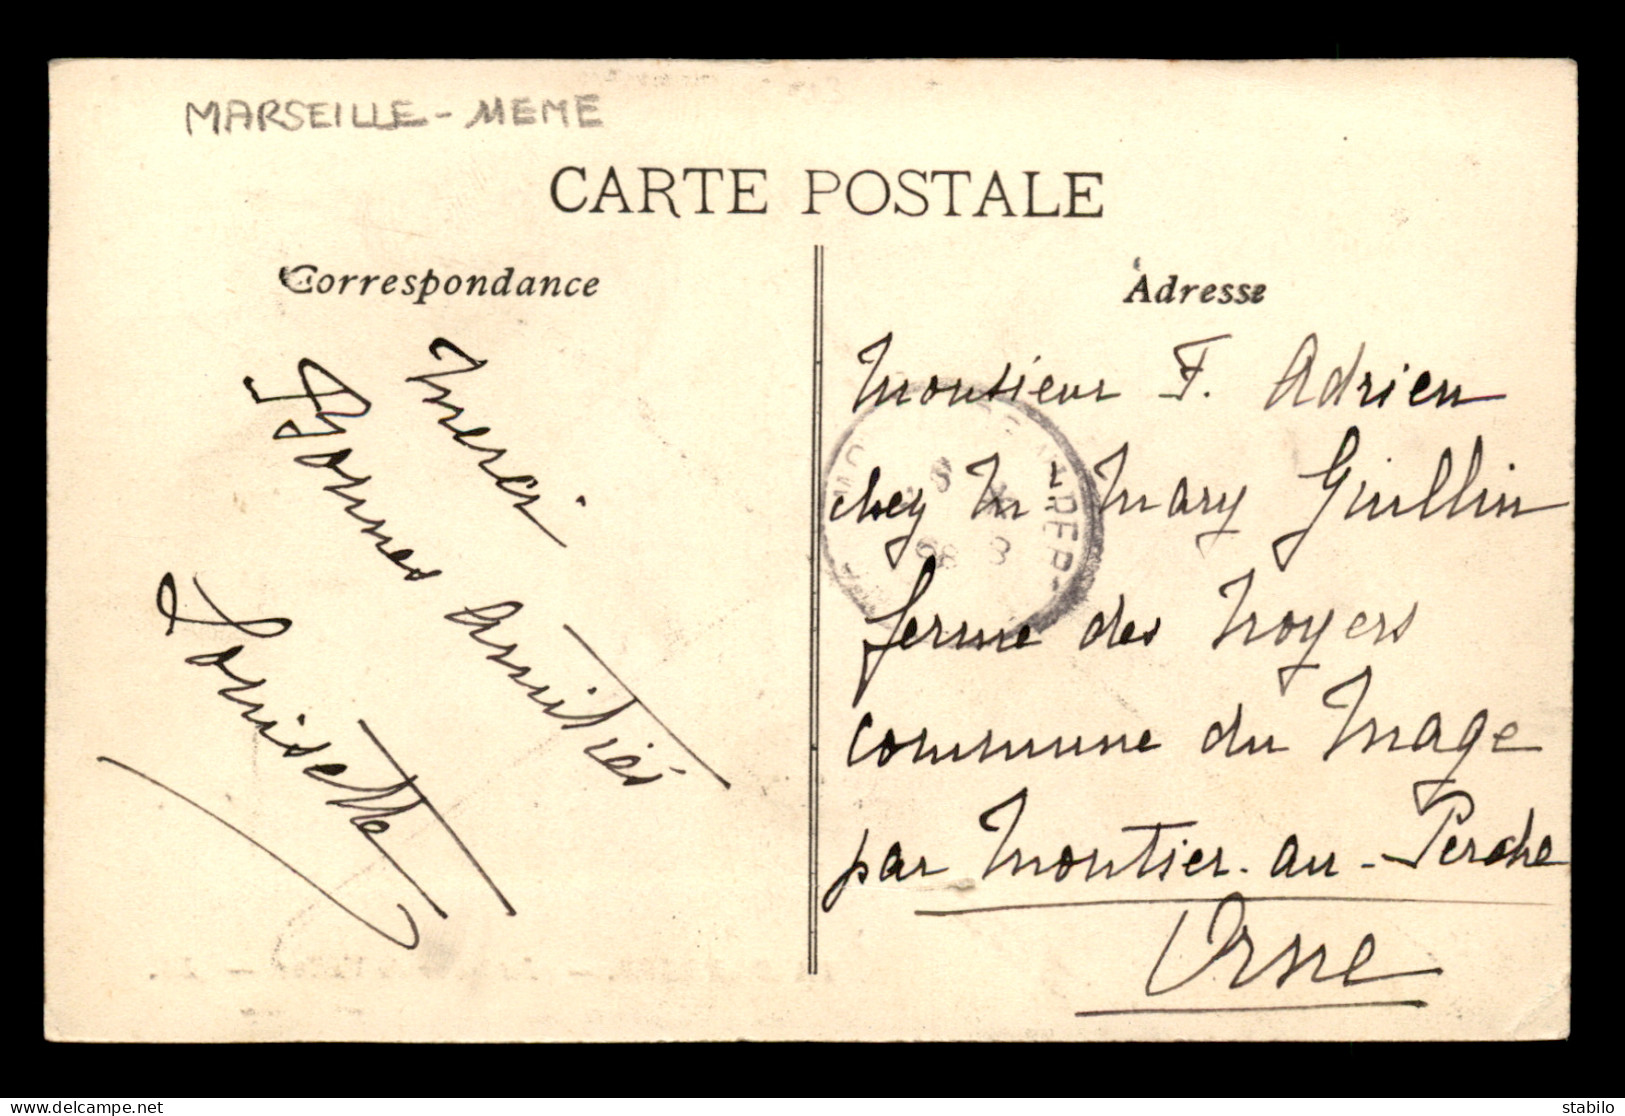 MARSEILLE - MEME
CARTE POSTALE
Correspondance
Merci
Bonnes amitiés
Louisette
Adresse
Monsieur F. Adrien
chez M Mary Guillin
ferme des Noyers
commune du Mage
par Moutier-au-Perche
Orne
delcampe.net
stabilo